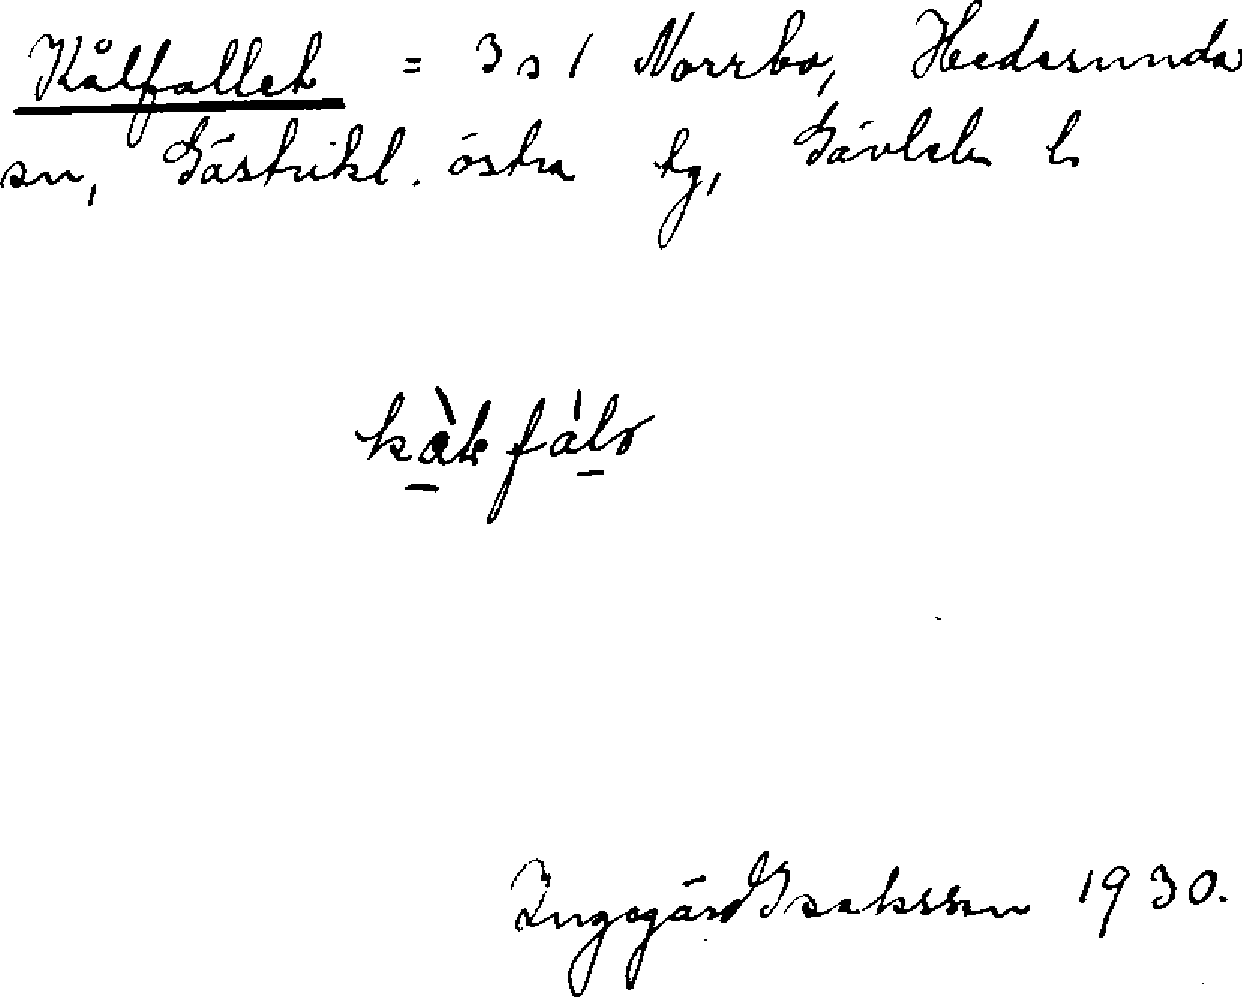 Kålfallet = 3 s 1 Norrbo, Hedesunda
sn, Gästrikl. östra tg, Gävleb. l.
Ingegärd Isaksson 1930.